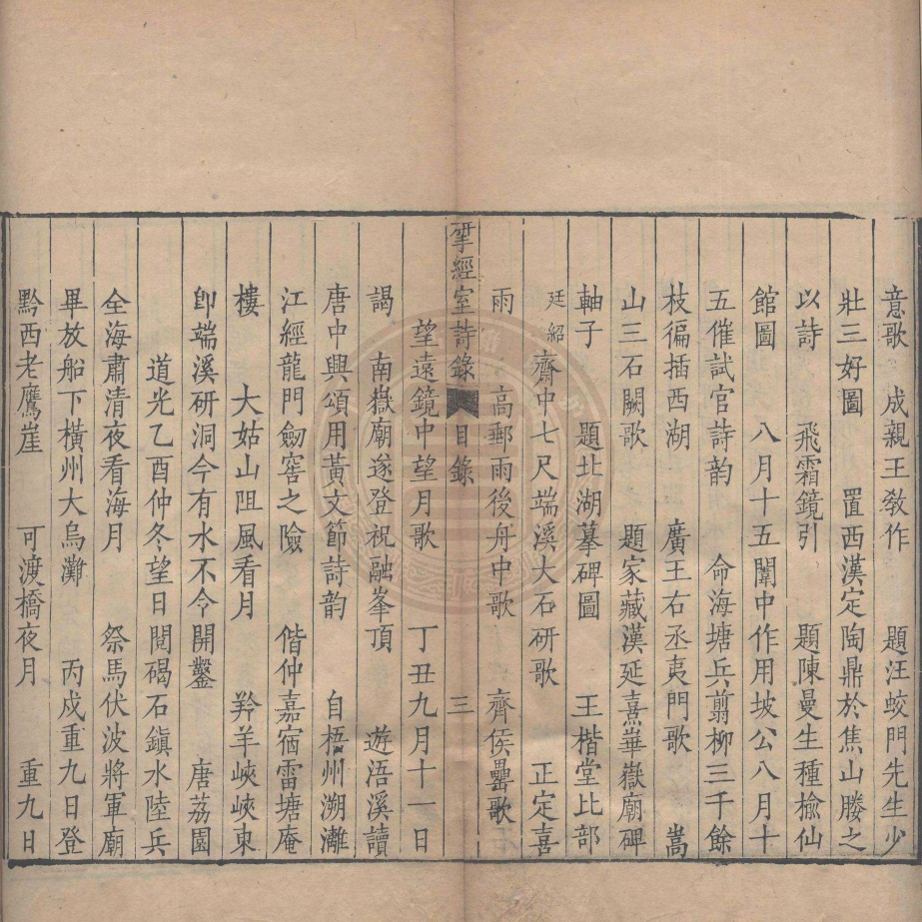 意歌　成親王敎作　題汪蛟門先生少
壯三好圖　置西漢定陶鼎於焦山媵之
以詩　飛霜鏡引　題陳曼生種楡仙
館圖　八月十五闈中作用坡公八月十
五催試官詩韵　命海塘兵翦柳三千餘
枝徧插西湖　廣王右丞夷門歌　嵩
山三石闕歌　題家藏漢延熹華嶽廟碑
軸子　題北湖摹碑圖　王楷堂比部
廷紹齋中七尺端溪大石研歌　正定喜
雨　高郵雨後舟中歌　齊侯罍歌
揅經室詩錄　目錄　三
望遠鏡中望月歌　丁丑九月十一日
謁　南嶽廟遂登祝融峯頂　遊浯溪讀
唐中興頌用黃文節詩韵　自梧州溯灕
江經龍門劒窖之險　偕仲嘉宿雷塘庵
樓　大姑山阻風看月　羚羊峽峽東
卽端溪研洞今有水不令開鑿　唐荔園
道光乙酉仲冬望日閱碣石鎭水陸兵
全海肅清夜看海月　祭馬伏波將軍廟
畢放船下橫州大烏灘　丙戌重九日登
黔西老鷹崖　可渡橋夜月　重九日